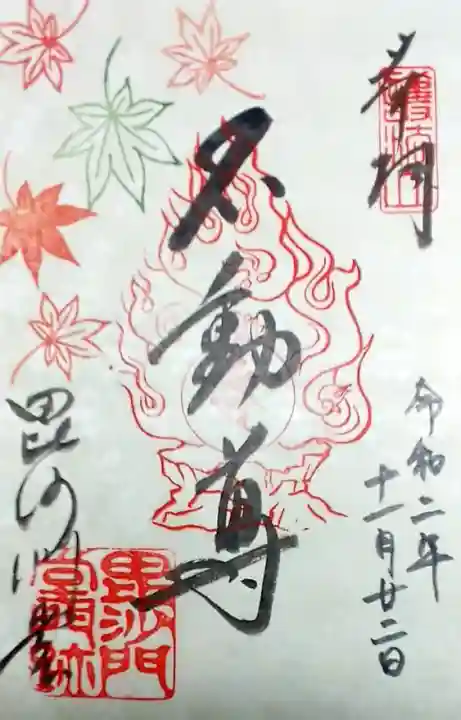 奉拝
令和二年
十一月廿二日
不動尊
毘沙門堂
毘沙門